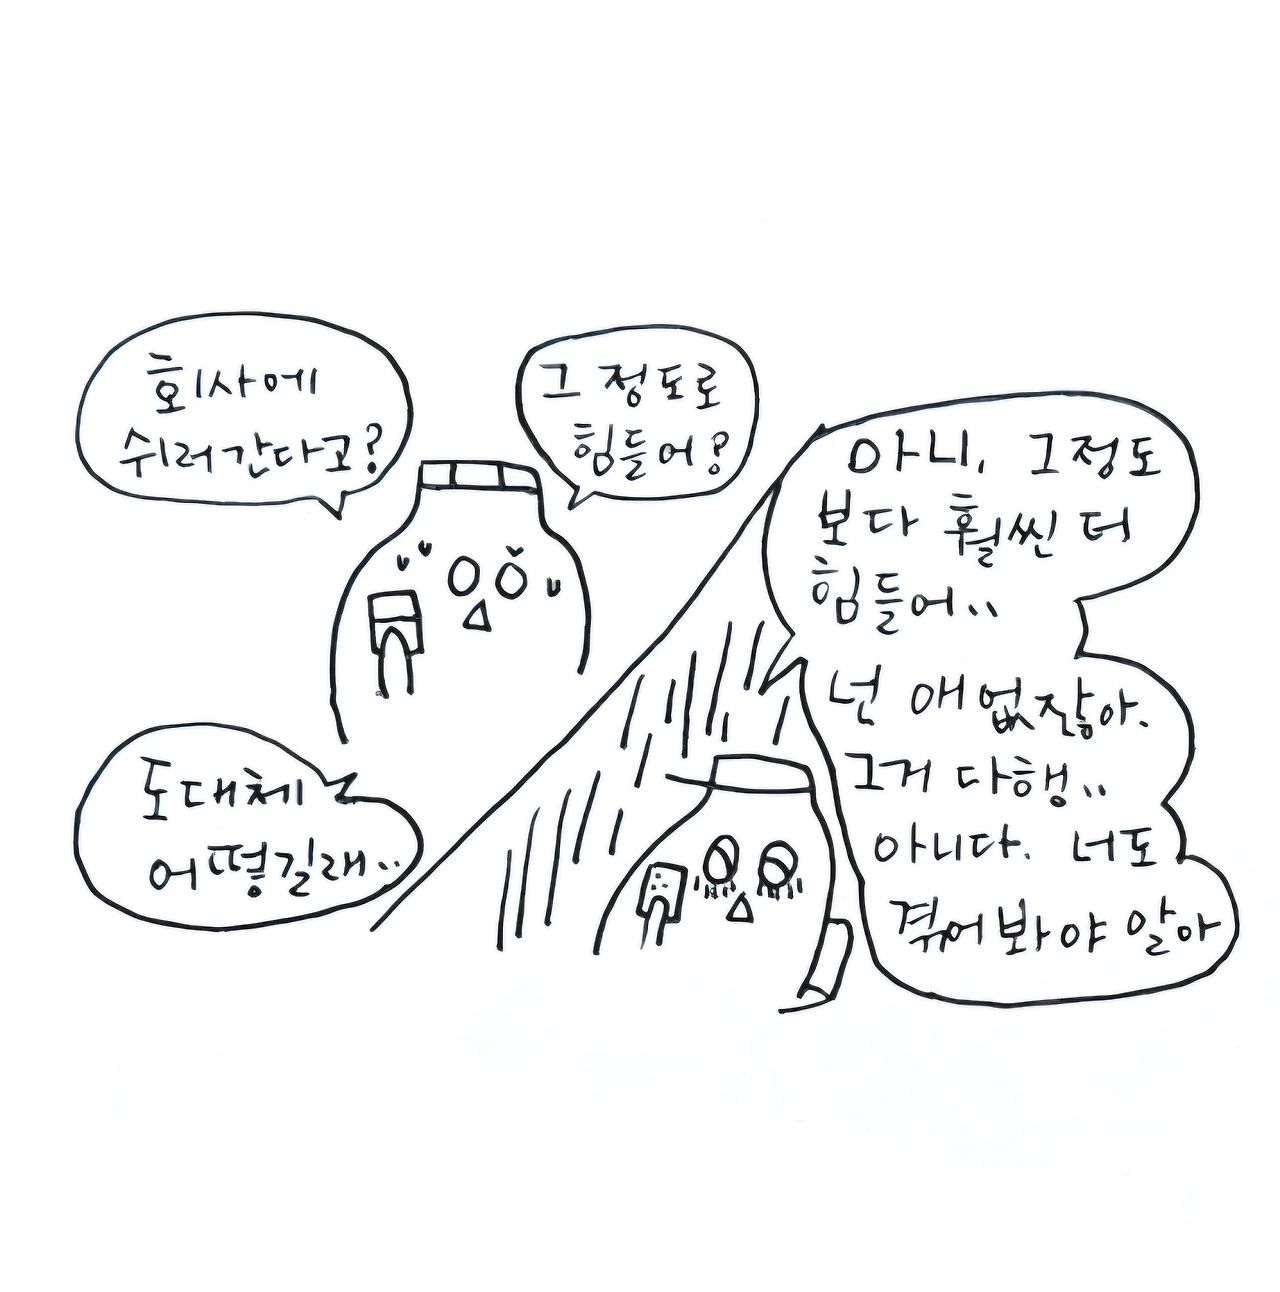 회사에
쉬러간다고?
그 정도로
힘들어?
도대체
어떻길래..
아니, 그정도
보다 훨씬 더
힘들어..
넌 애 없잖아.
그거 다행..
아니다. 너도
겪어봐야 알아